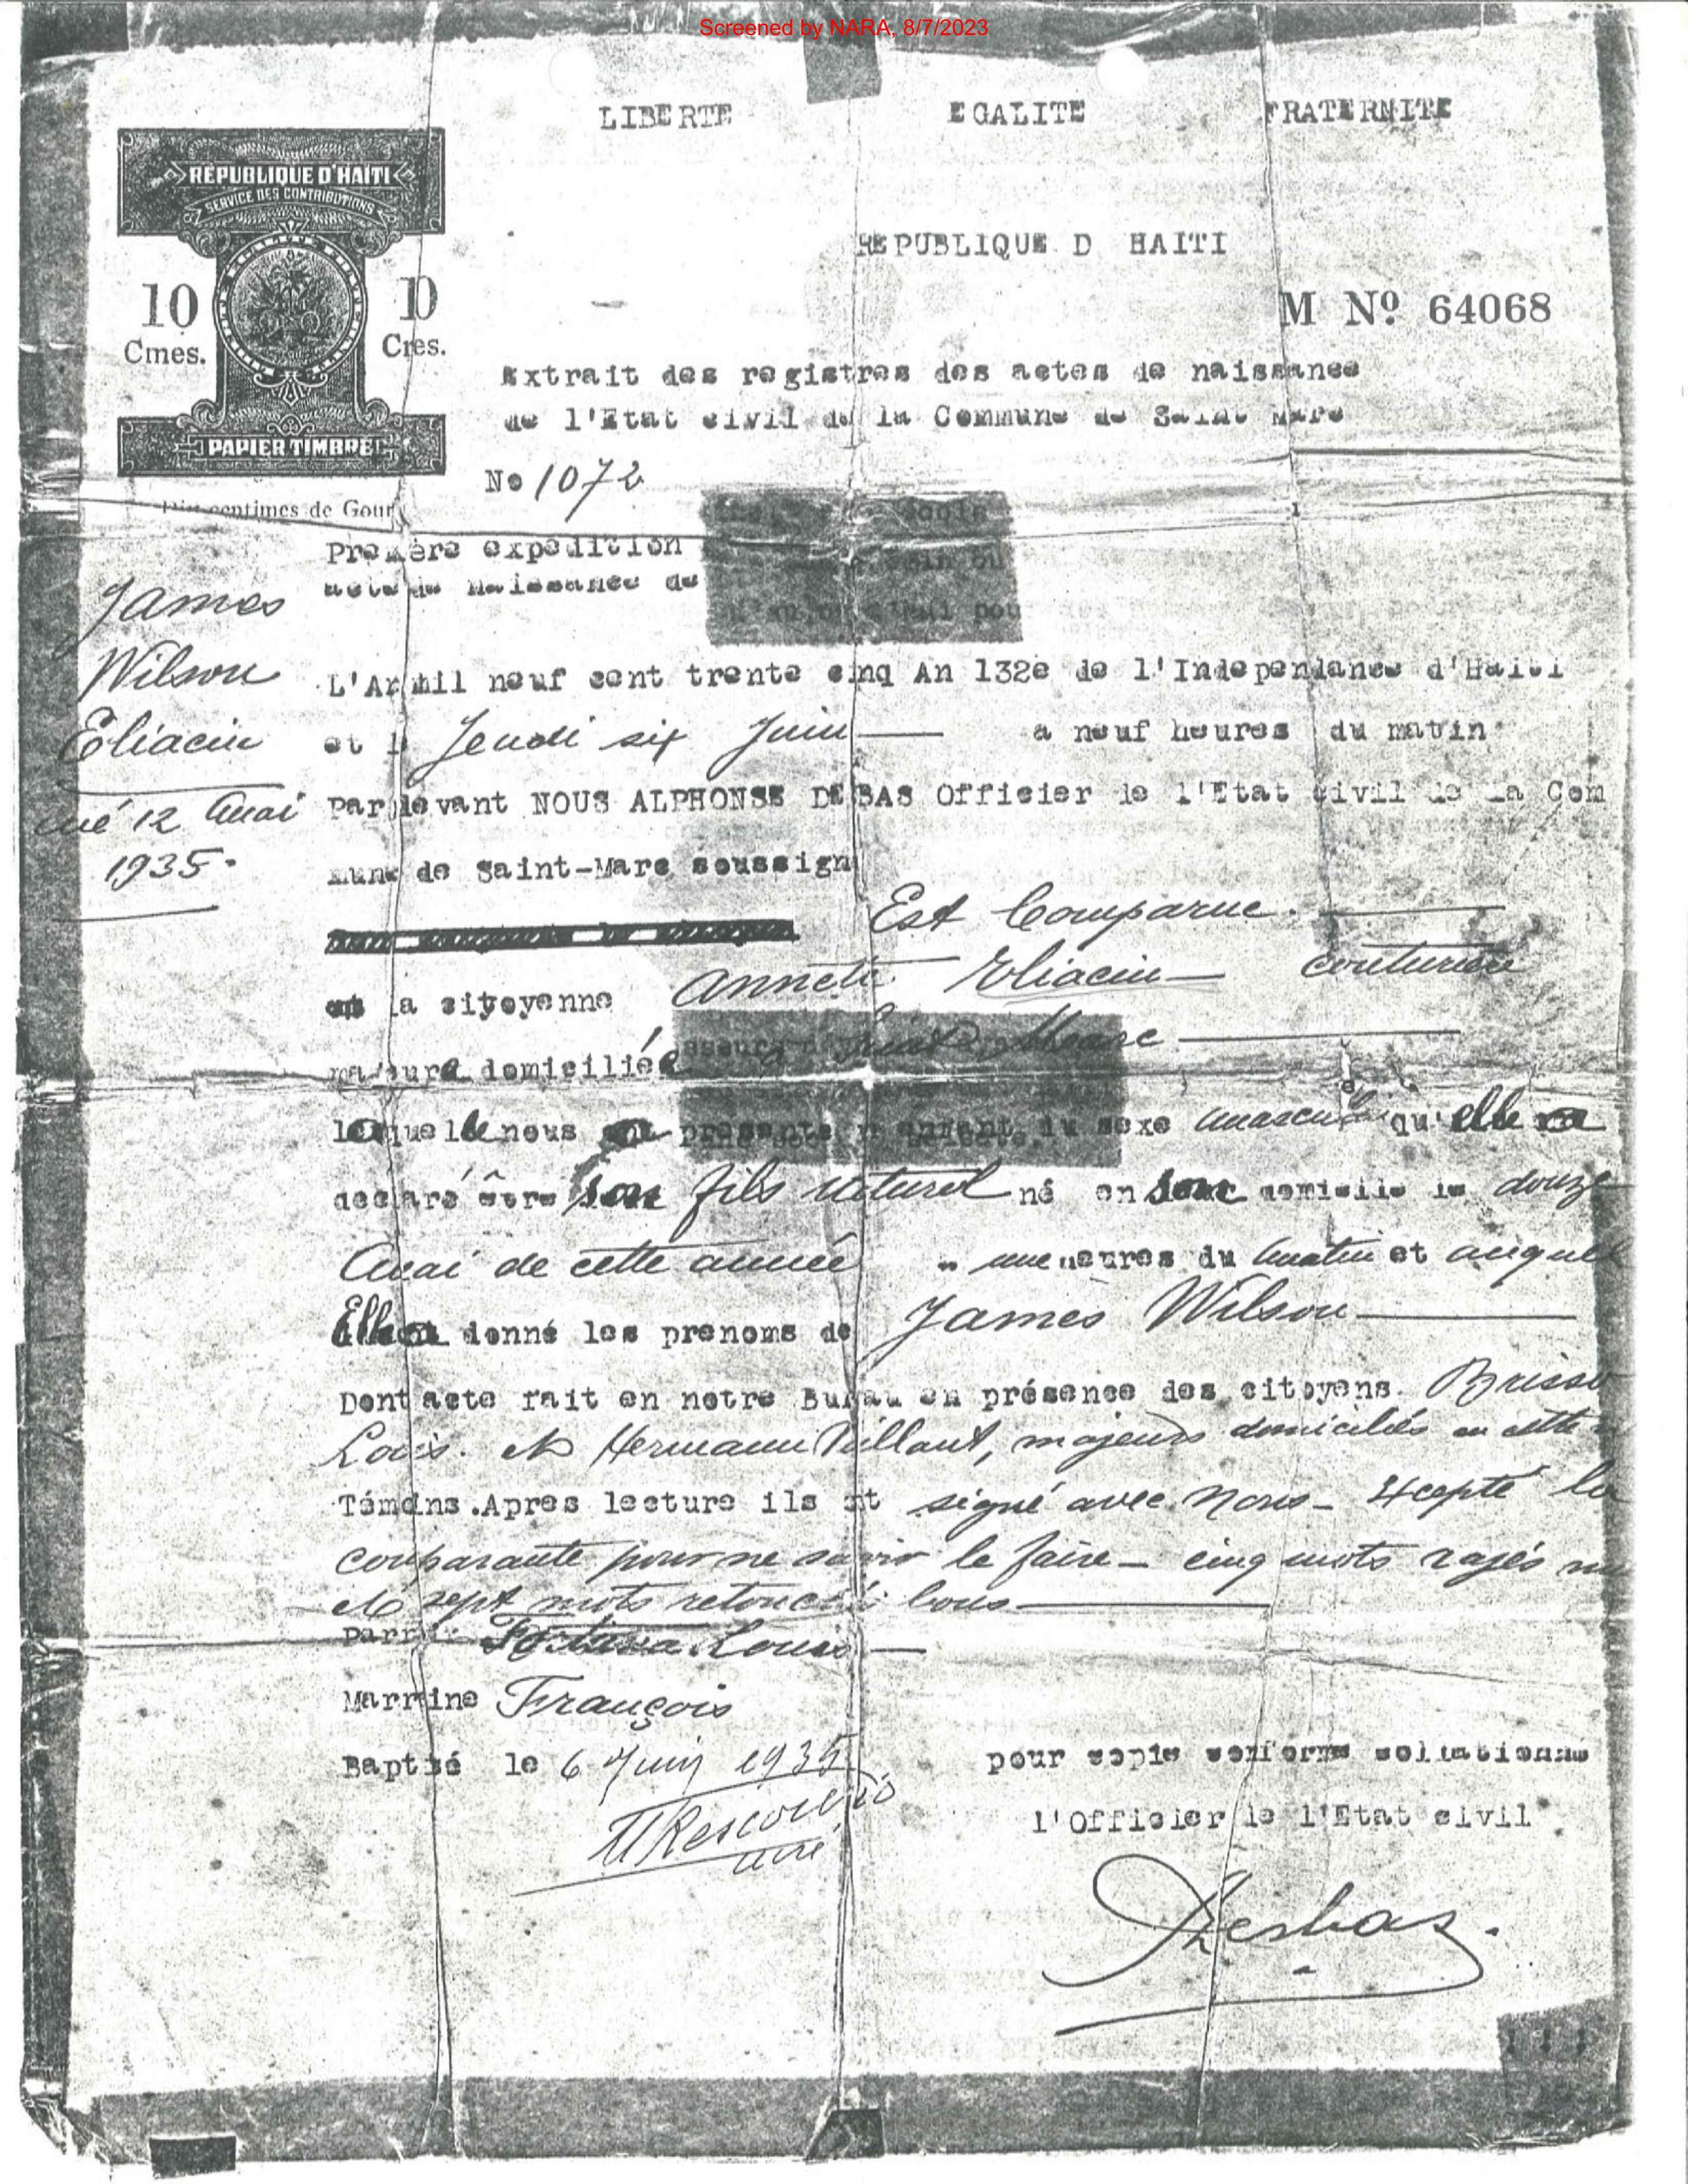 Screened by NARA, 8/7/2023
LIBERTE EGALITE FRATERNITE
RÉPUBLIQUE D'HAÏTI
SERVICE DES CONTRIBUTIONS
REPUBLIQUE D HAITI
10 Cmes.
M Nº 64068
Extrait des registres des actes de naissance
de l'Etat civil de la Commune de Saint Marc
PAPIER TIMBRÉ
No 1072
centimes de Gour
Première expedition
acte de Naissance de
James
Wilson
Eliacin
né 12 Mai
1935.
L'An mil neuf cent trente cinq An 132e de l'Independance d'Haiti
et l Jeudi six Juin a neuf heures du matin
Par devant NOUS ALPHONSE DESBAS Officier de l'Etat civil de la Com
mune de Saint-Marc soussign
Est Comparue.
la citoyenne Annete Eliacin couturière
majeure domiciliée Saint Marc
laquelle nous presente enfant du sexe masculin qu'elle a
declaré être son fils naturel né en son domicile le douze
Mai de cette année une heures du matin et auquel
Elle a donné les prenoms de James Wilson
Dont acte fait en notre Bureau en présence des citoyens. Brisso
Louis. et Hermann Vaillant, majeurs domiciliés en cette
Témoins. Apres lecture ils ont signé avec nous - Excepté la
comparante pour ne savoir le faire - cinq mots rayés nu
et sept mots retouchés bons
Parrain Louis
Marraine François
Baptisé le 6 Juin 1935
curé
pour copie conforme collationné
l'Officier de l'Etat civil
Desbas.